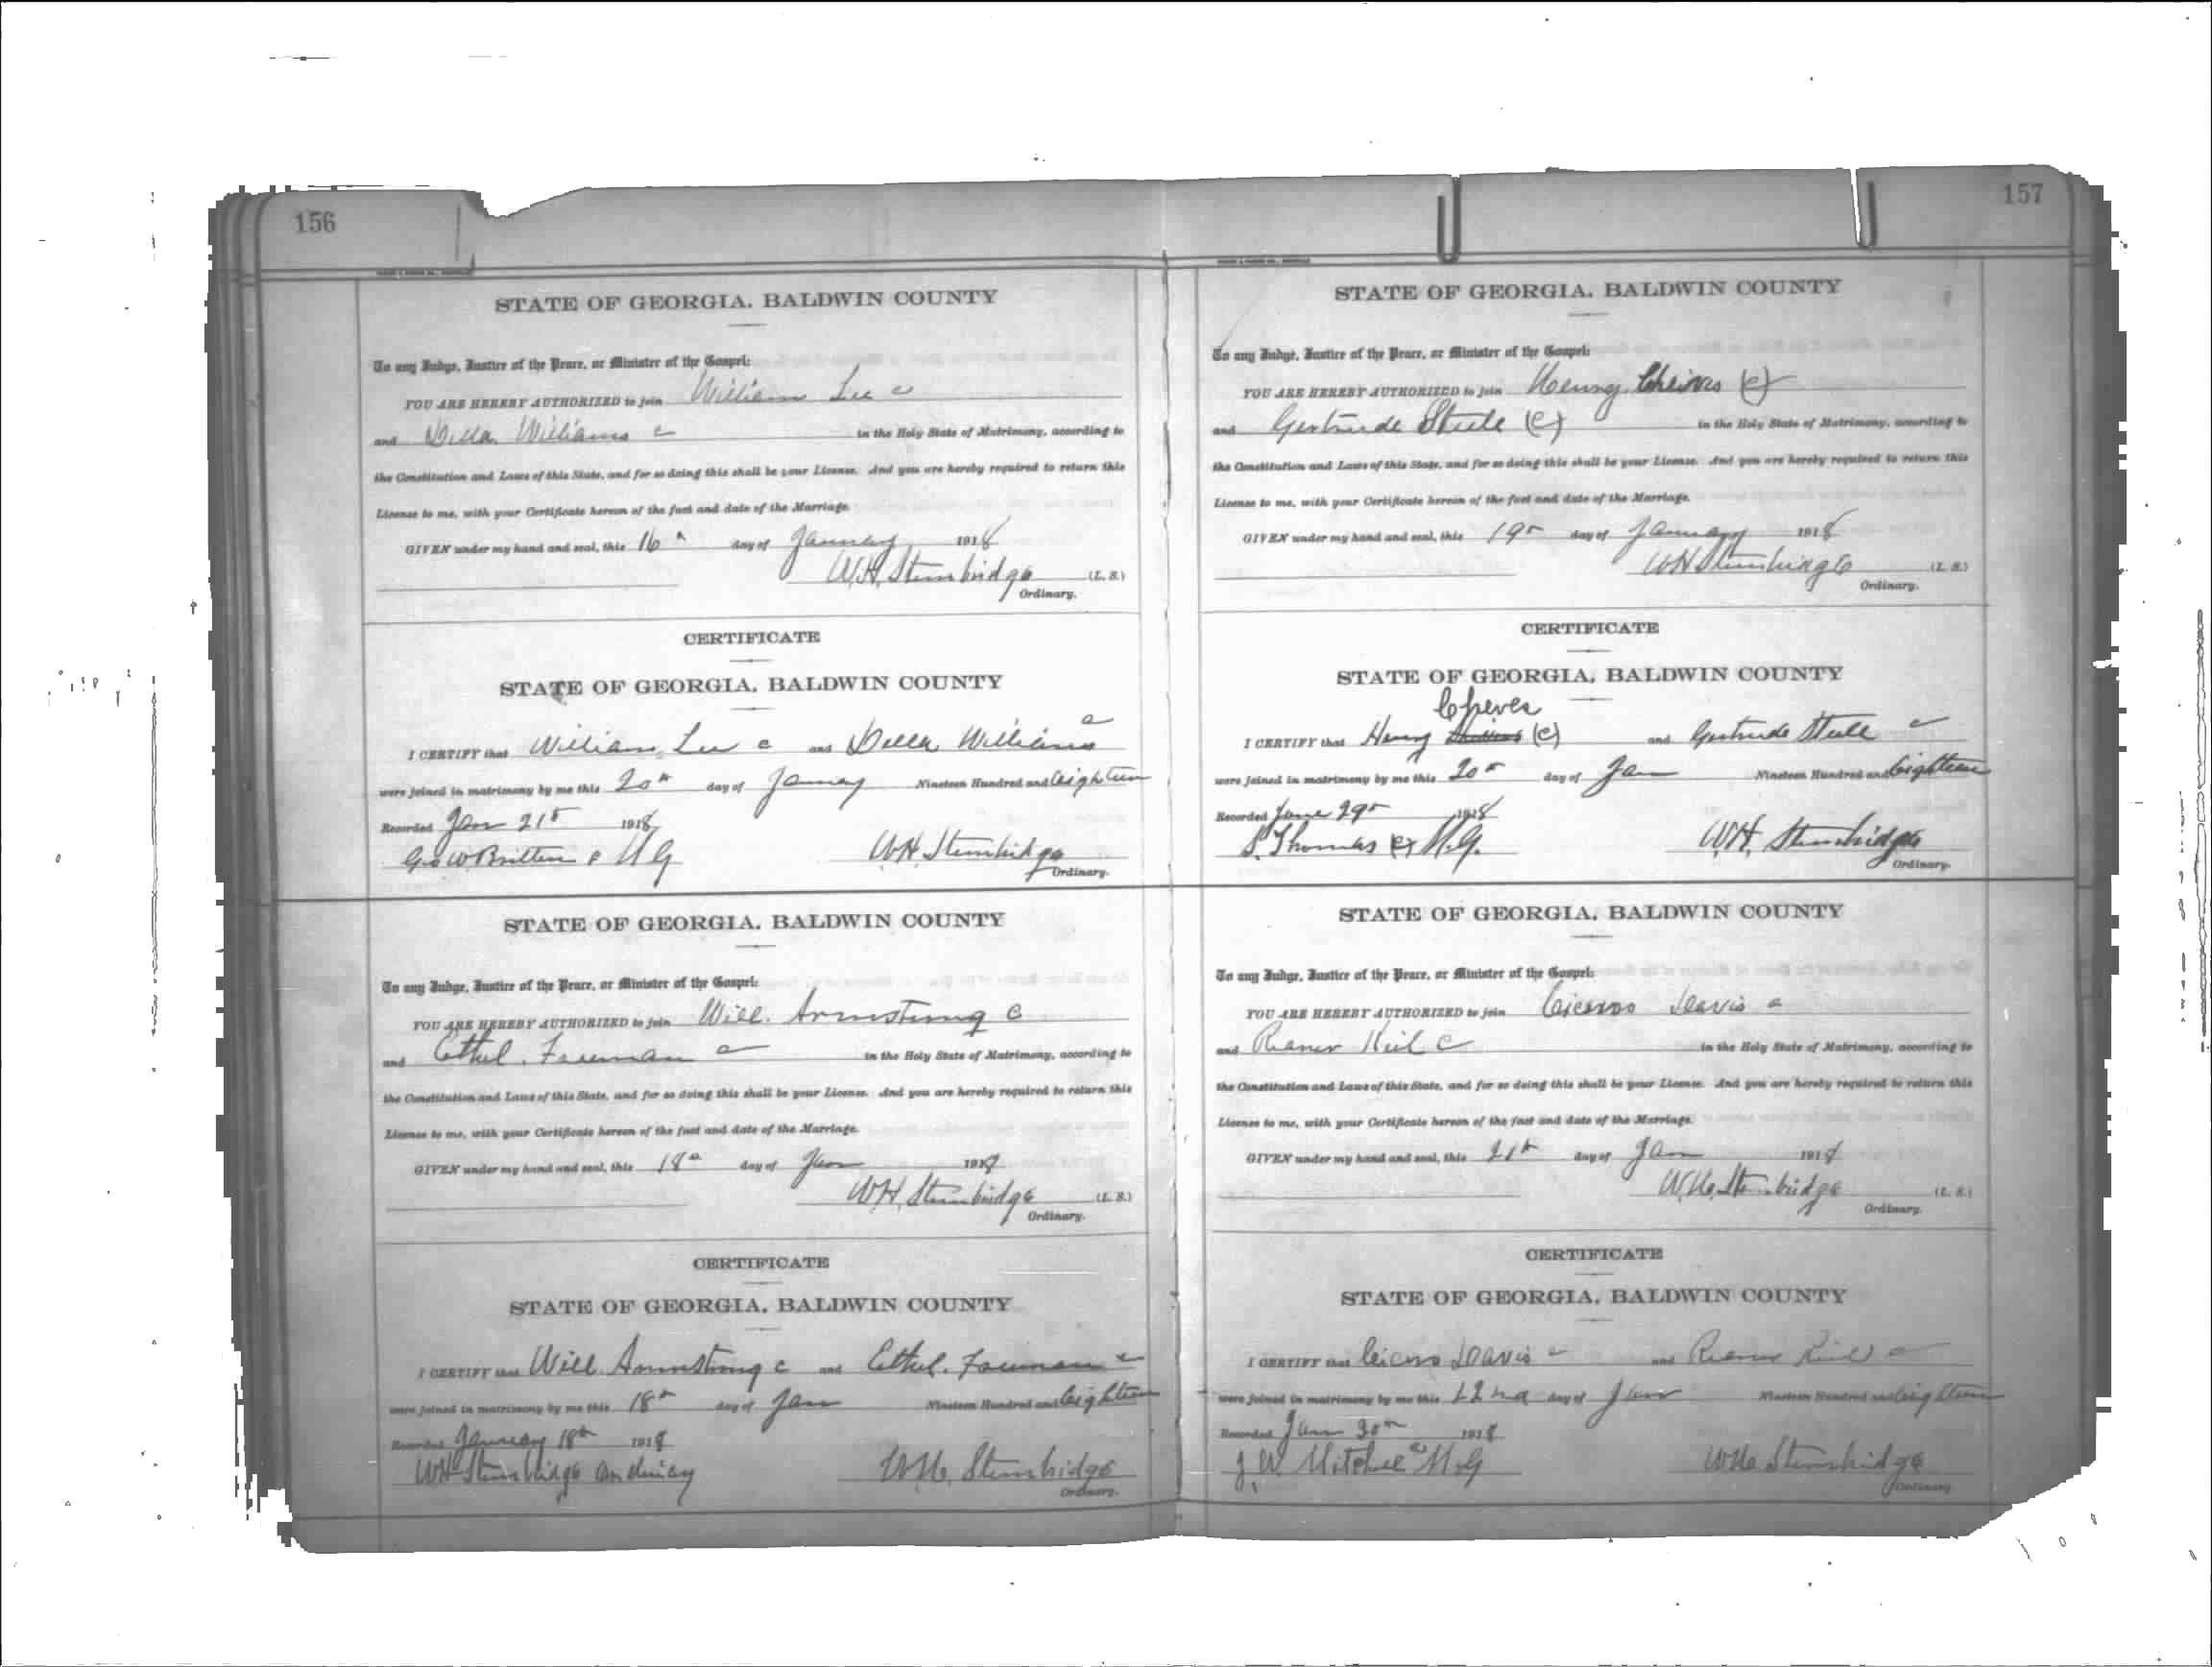 156
STATE OF GEORGIA. BALDWIN COUNTY
To any Judge, Justice of the Peace, or Minister of the Gospel:
YOU ARE HEREBY AUTHORIZED to join William Lee c
and Della Williams c in the Holy State of Matrimony, according to
the Constitution and Laws of this State, and for so doing this shall be your License. And you are hereby required to return this
License to me, with your Certificate hereon of the fact and date of the Marriage.
GIVEN under my hand and seal, this 16th day of January 1918
W.H. Stembridge (L. S.)
Ordinary.
CERTIFICATE
STATE OF GEORGIA. BALDWIN COUNTY
I CERTIFY that William Lee c and Della Williams c
were joined in matrimony by me this 20th day of January Nineteen Hundred and Eighteen
Recorded Jan 21st 1918
Geo W Britten c M G W.H. Stembridge
Ordinary.
STATE OF GEORGIA. BALDWIN COUNTY
To any Judge, Justice of the Peace, or Minister of the Gospel:
YOU ARE HEREBY AUTHORIZED to join Will. Armstrong c
and Ethel. Freeman c in the Holy State of Matrimony, according to
the Constitution and Laws of this State, and for so doing this shall be your License. And you are hereby required to return this
License to me, with your Certificate hereon of the fact and date of the Marriage.
GIVEN under my hand and seal, this 18th day of Jan
W.H. Stembridge (L. S.)
Ordinary.
CERTIFICATE
STATE OF GEORGIA. BALDWIN COUNTY
I CERTIFY that Will Armstrong c and Ethel. Freeman c
were joined in matrimony by me this 18th day of Jan Nineteen Hundred and Eighteen
Recorded January 18th 1918
W.H. Stembridge Ordinary W.H. Stembridge
Ordinary.
157
STATE OF GEORGIA. BALDWIN COUNTY
To any Judge, Justice of the Peace, or Minister of the Gospel:
YOU ARE HEREBY AUTHORIZED to join Henry (c)
and Gertrude Steele (c) in the Holy State of Matrimony, according to
the Constitution and Laws of this State, and for so doing this shall be your License. And you are hereby required to return this
License to me, with your Certificate hereon of the fact and date of the Marriage.
GIVEN under my hand and seal, this 19th day of January 1918
W.H. Stembridge (L. S.)
Ordinary.
CERTIFICATE
STATE OF GEORGIA. BALDWIN COUNTY
Cheves
I CERTIFY that Henry (c) and Gertrude Steele c
were joined in matrimony by me this 20th day of Jan Nineteen Hundred and Eighteen
Recorded 29th 1918
S. Thomas (c) M.G. W.H. Stembridge
Ordinary.
STATE OF GEORGIA. BALDWIN COUNTY
To any Judge, Justice of the Peace, or Minister of the Gospel:
YOU ARE HEREBY AUTHORIZED to join Cicero Davis c
and c in the Holy State of Matrimony, according to
the Constitution and Laws of this State, and for so doing this shall be your License. And you are hereby required to return this
License to me, with your Certificate hereon of the fact and date of the Marriage.
GIVEN under my hand and seal, this 21st day of Jan 1918
W.H. Stembridge (L. S.)
Ordinary.
CERTIFICATE
STATE OF GEORGIA. BALDWIN COUNTY
I CERTIFY that Cicero Davis c and c
were joined in matrimony by me this 22nd day of Jan Nineteen Hundred and Eighteen
Recorded Jan 30th 1918
J.W. Mitchel c M.G W.H. Stembridge
Ordinary.